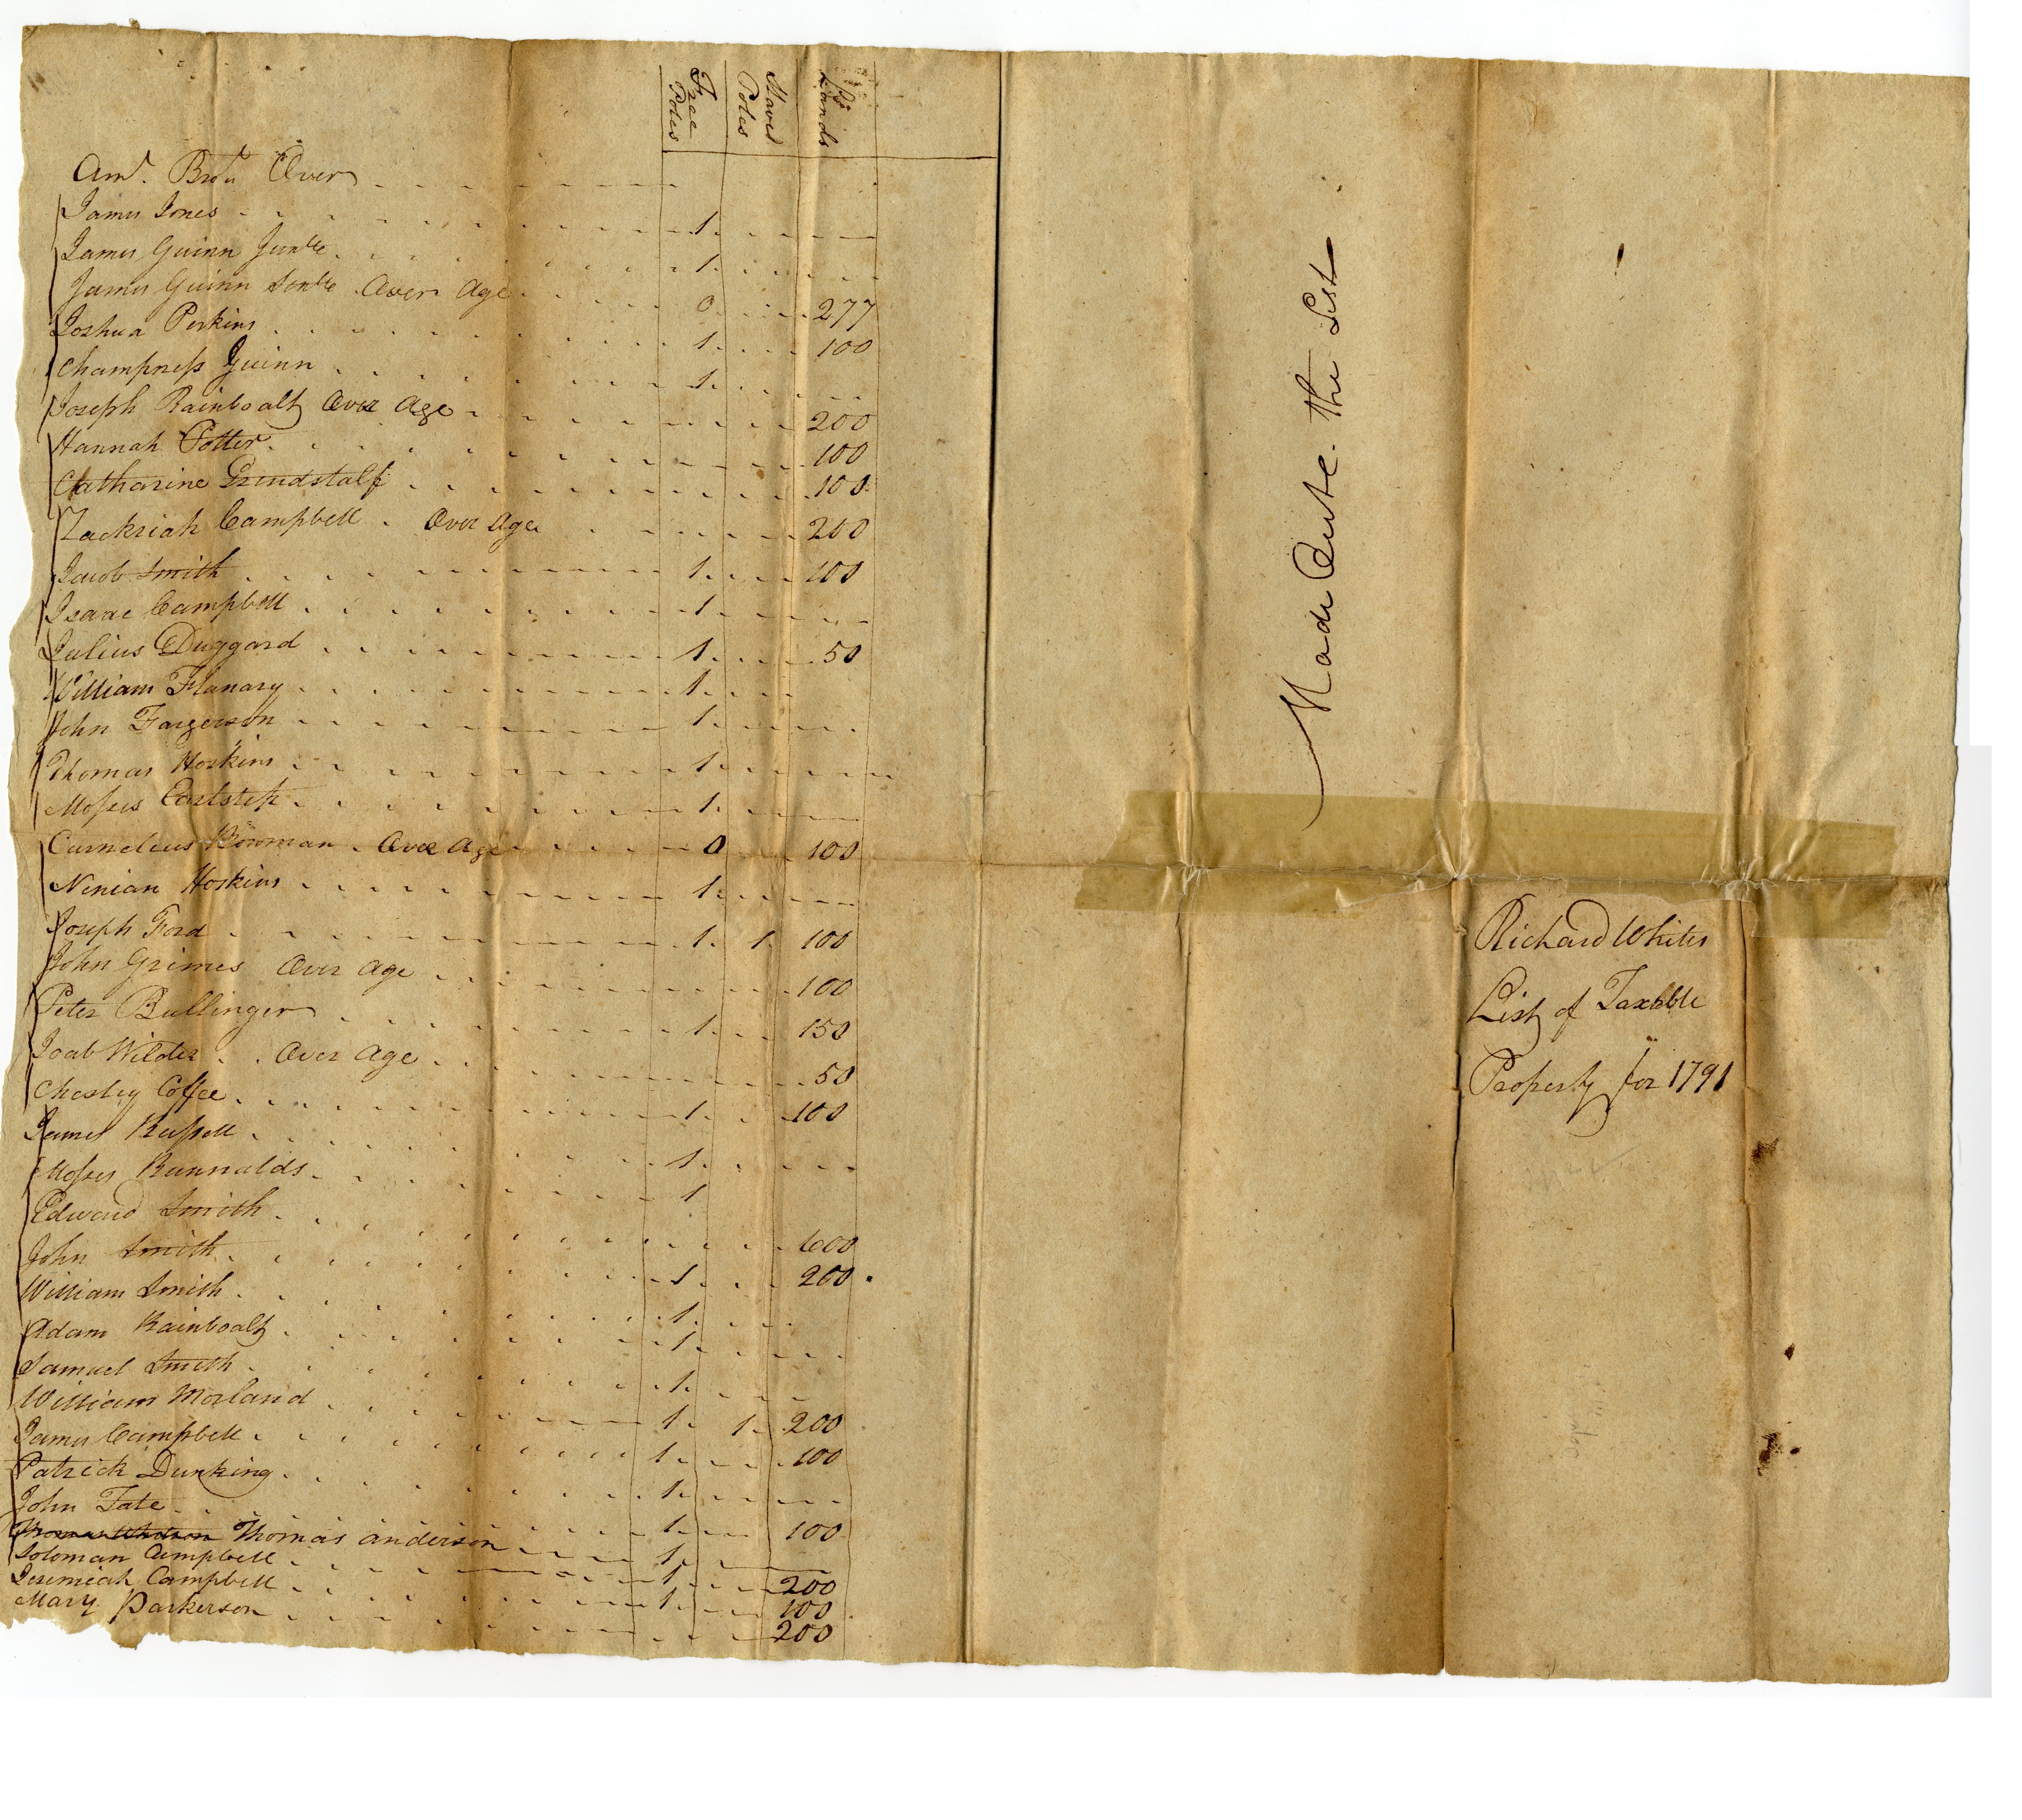 Free Poles Slaves Poles Lands
Amt. Brot. Over
James Jones 1
James Guinn Junr 1
James Guinn Senr Over Age 0 277
Joshua Perkins 1 100
Champness Guinn 1
Joseph Rainboalt Over Age 200
Hannah Potter 100
Catharine Grindstalf 100
Zackriah Campbell Over Age 200
Jacob Smith 1 100
Isaac Campbell 1
Julius Duggard 1 50
William Flanary 1
John Fargerson 1
Thomas Hoskins 1
Moses 1
Curnelius Bowman Over Age 0 100
Ninian Hoskins 1
Joseph Ford 1 1 100
John Grimes Over Age 100
Peter Bullinger 1 150
Joab Wilder Over Age 50
Chesley Coffee 1 100
James Russell 1
Moses Runnalds 1
Edward Smith 600
John Smith 1 200
William Smith 1
Adam Rainboalt 1
Samuel Smith 1
William Morland 1 1 200
James Campbell 1 100
Patrick Dunking 1
John Tate 1 100
Thomas Whitson Thomas Anderson 1
Soloman Campbell 1 200
Jeremiah Campbell 1 100
Mary Parkerson 200
Made Oute the List
Richard Whites
List of Taxable
Property for 1791